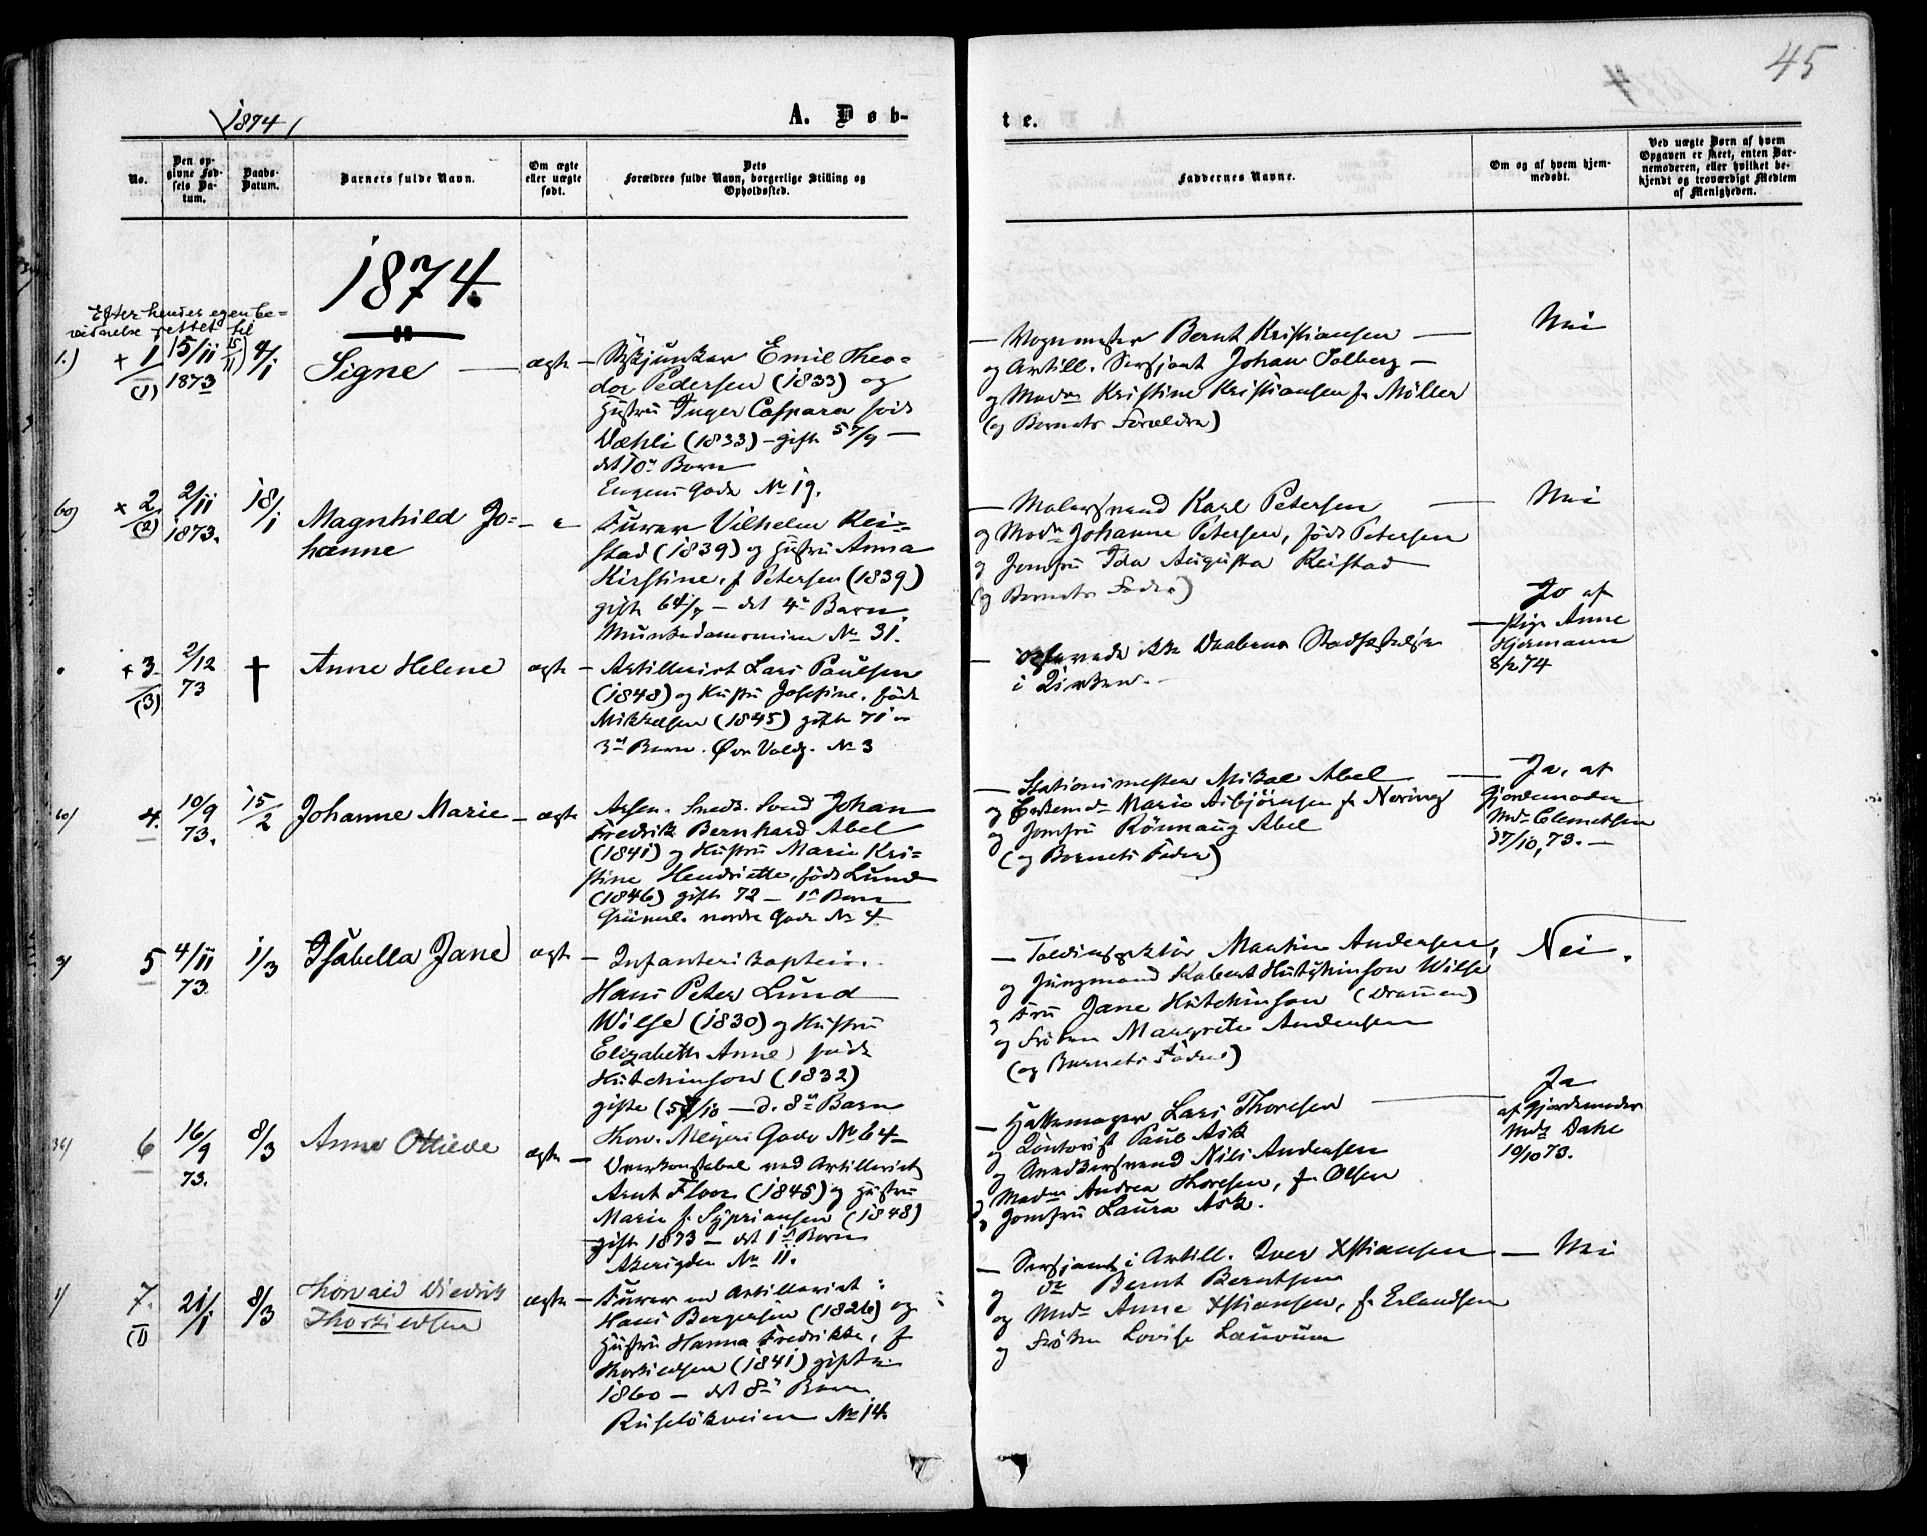 45
1874
A. Døb-
te.
No.
Den op-
givne Fød-
sels Da-
tum.
Daabs-
Datum.
Barnets fulde Navn.
Om ægte
eller uægte
født.
Dets
Forældres fulde Navn, borgerlige Stilling og
Opholdssted.
Faddernes Navne.
Om og af hvem hjem-
medøbt.
Ved uægte Børn af hvem
Opgaven er skeet, enten Bar-
nemoderen, eller hvilket be-
kjendt og troværdigt Medlem
af Menigheden.
1874.
Efter hendes egen be-
vidnelse rettet til 15/11
1.) + 1 (1) 15/11 1873 4/1 Signe — ægte —
Emil Theo-
dor Pedersen (1833) og
Hustru Inger Caspara født
Dæhli (1833) – gift 57/9 —
det 10de Barn
Eugenis Gade No 19.
— Vognmester Bernt Kristiansen —
og Artill. Sersjant Johan Solberg —
og Madm Kristine Kristiansen f. Möller
(og Barnets Forældre)
Nei
× 2. (2) 2/11 1873. 18/1 Magnhild Jo-
hanne
Furer Vilhelm Rei-
stad (1839) og Hustru Anna
Kirstine, f Petersen (1839)
gift 64/7 — det 4de Barn
Munkedamsveien No 31.
— Malersvend Karl Petersen —
og Mad. Johanne Petersen, født Petersen
og Jomfru Ida Augusta Reistad
(og Barnets Fader)
Nei
+ 3. (3) 2/12 73 † Anne Helene ægte —
Artillerist Lars Paulsen
(1848) og Hustru Josefine, født
Mikkelsen (1845) gift 71 —
3de Barn. Øvr Voldg. No 3
— ikke Daabens Stadfæstelse
i Kirken. —
Jo af
Pige Anne
Hjermann
8/2 74
4. 10/9 73. 15/2 Johanne Marie — ægte
Arsen. Sned. Svend Johan
Fredrik Bernhard Abel
(1841) og Hustru Marie Kri-
stine Henriette, født Lund
(1846) gift 72 — 1ste Barn
Grünerl. nordre Gade No 4
— Stationsmester Mikal Abel —
og Enkemd. Marie Asbjörnsen f. Nering
og Jomfru Rönnaug Abel
(og Barnets Fader)
Ja, af
Gjordemoder
Md. Clemetsen
27/10, 73. —
3) 5 4/11 73 1/3 Isabella Jane ægte —
Infanterikaptein
Hans Peter Lund
Wilse (1830) og Hustru
Elizabeth Anne, født
Hutchinson (1832)
gifte (57/10 — d. 8de Barn
Thor. Meyers Gade No 64
— Toldinspektör Martin Andersen,
og Jungmand Robert Hutchinson Wilse
og Fru Jane Hutchinson (Dramen)
og Fröken Margrete Andersen
(og Barnets Fader)
Nei.
6 16/9 73. 8/3 Anna Ottiede ægte —
Overkonstabel ved Artilleriet
Arnt Floor (1845) og Hustru
Marie f. Sypriansen (1848)
gift 1873 — det 1ste Barn
Akerigden No 11.
— Hattemager Lars Thoresen —
og Kontorist Paul Ask
og Snedkersvend Nils Andersen
og Madm Andrea Thoresen, f. Olsen
og Jomfru Laura Ask.
Ja
af Gjordemoder
Md. Dahl
19/10 73.
1) 7. (1) 21/1 8/3 Thorvald Diedrik
Thorkildsen ægte —
Furer ved Artilleriet
Hans Bergersen (1826) og
Hustru Hanna Fredrikke, f
Thorkildsen (1841) gifte
1860 — det 8de Barn
Ruselökveien No 14.
— Sersjant i Artill. Iver Xstiansen —
og do Bernt Berntsen
og Md. Anne Xstiansen, f. Erlandsen
og Fröken Lovise Lauvum
Nei